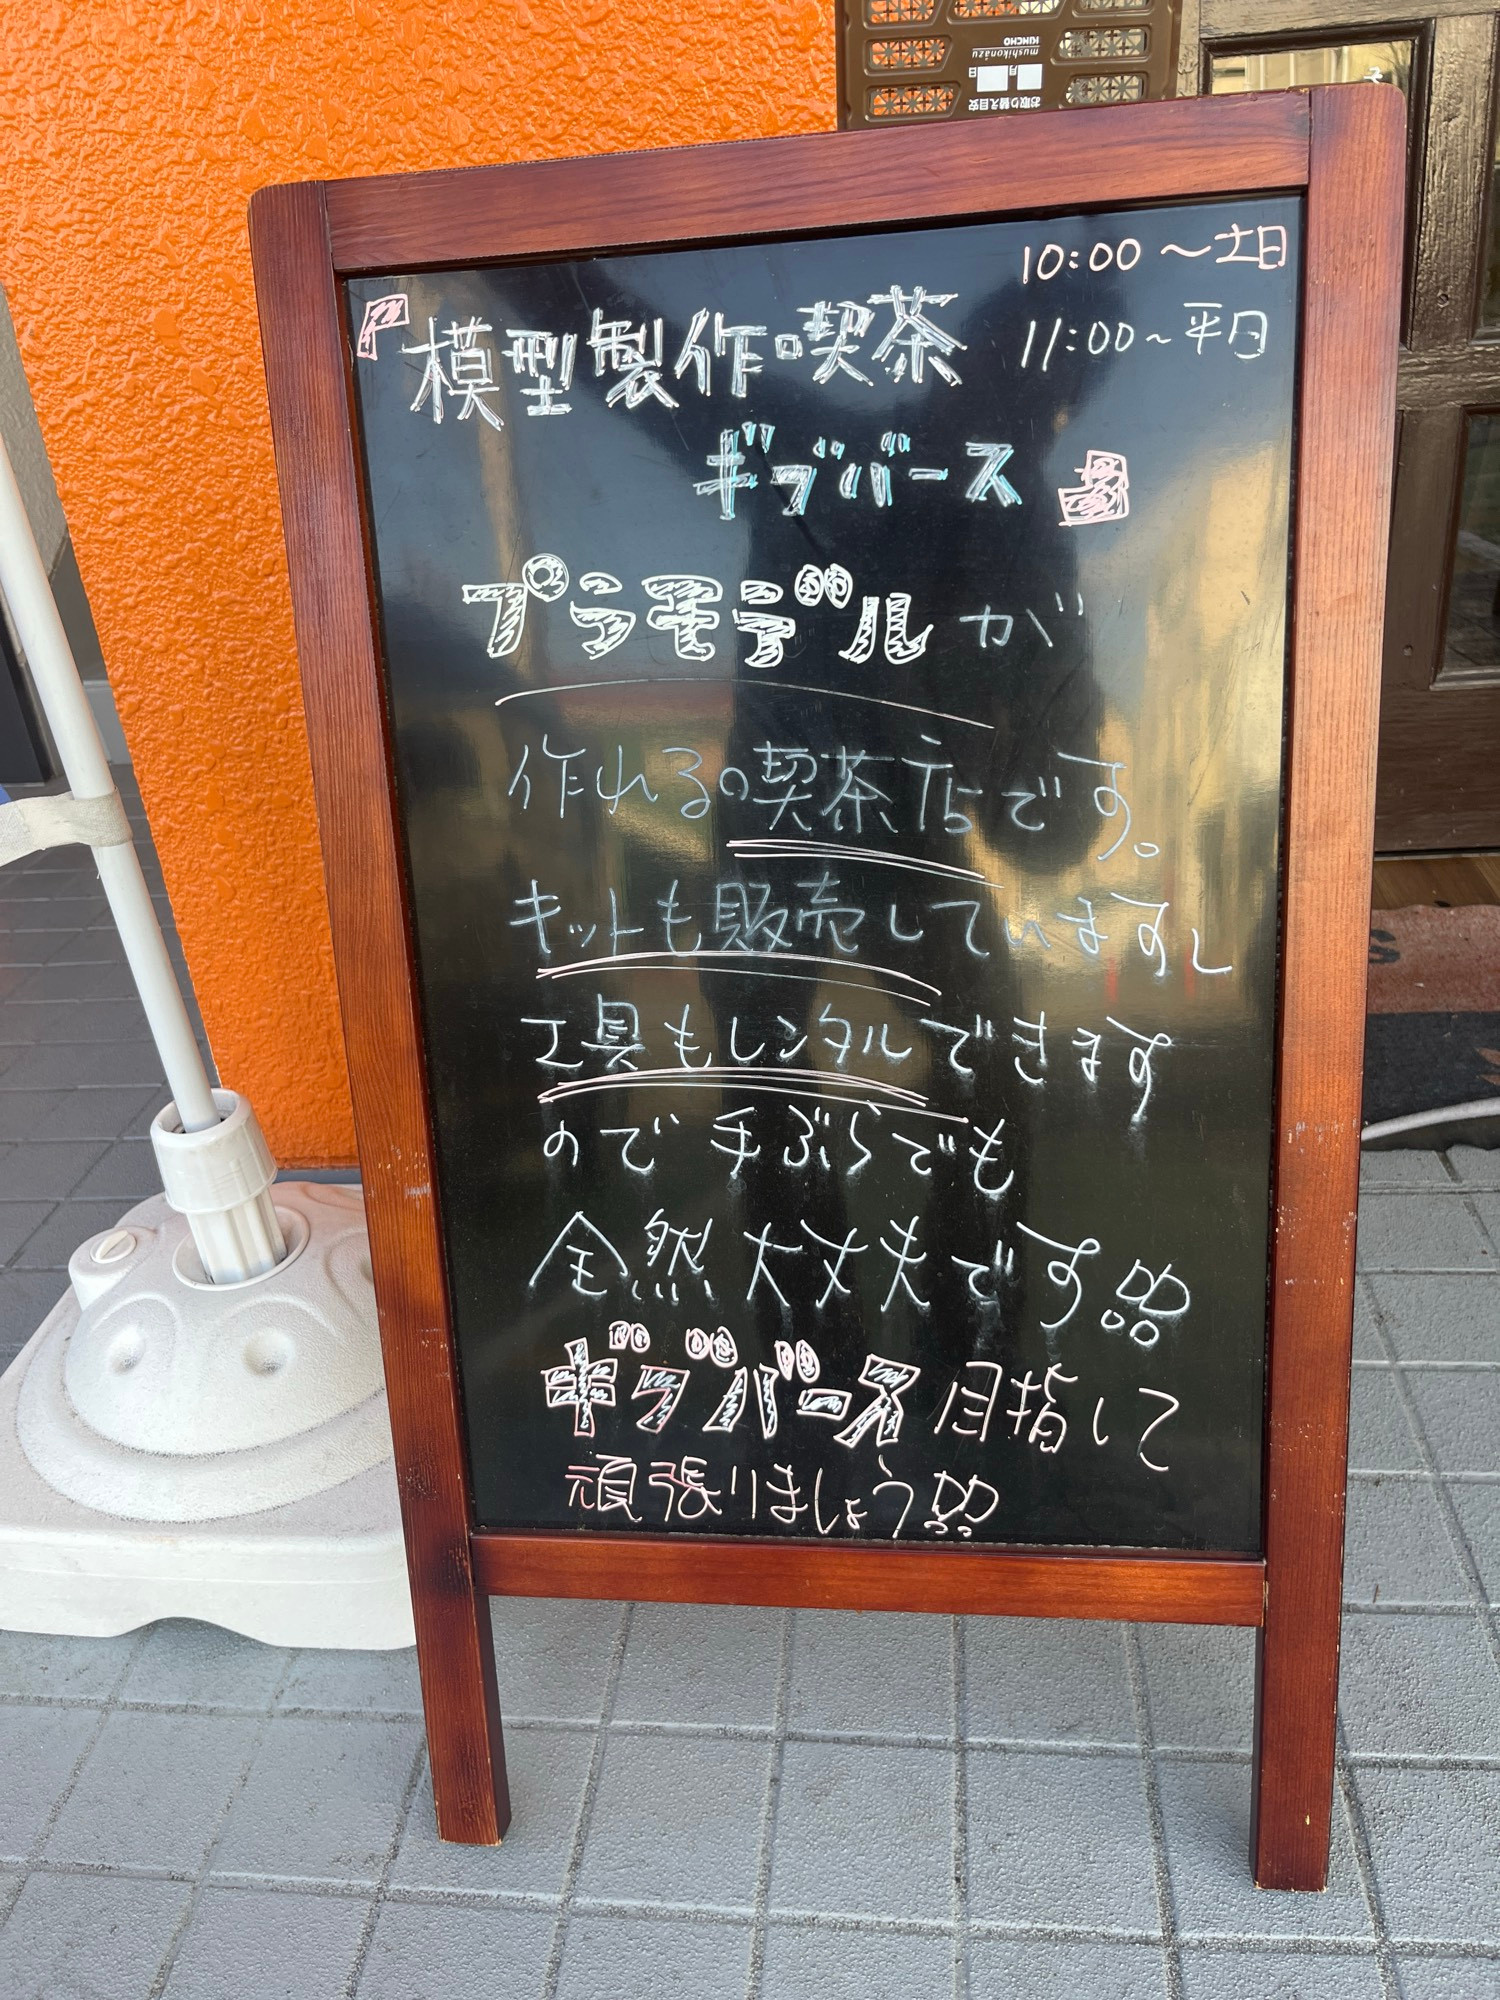 お取り替え目安
月 日
mushikonazu
KINCHO
10:00～土日
11:00～平日
模型製作喫茶
ギブバース
プラモデルが
作れるの喫茶店です。
キットも販売していますし
工具もレンタルできます
ので手ぶらでも
全然大丈夫です!!
ギブバース目指して
頑張りましょう!!